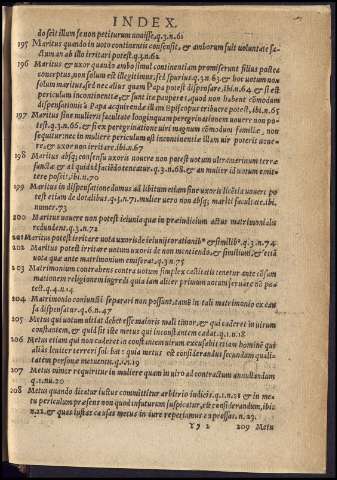 INDEX.
do scit illum se non petiturum nouisse. q.3.n.61
195 Maritus quando in uoto continentiæ consensit, & amborum fuit uoluntate factum an ab illo irritari potest. q.3.n.62
196 Maritus & uxor quando ambo simul continentiam promiserunt filius postea
conceptus, non solum est illegitimus, sed spurius. q.3.n.63. & hoc uotum non
solum maritus, sed nec alius quam Papa potest dispensare, ibi.n.64 & si est
periculum incontinentiæ, & sunt ita pauperes, quod non habent cōmodum
dispensationis à Papa acquirendæ illam Episcopus tribuere potest, ibi.n.65
197 Maritus sine mulieris facultate longinquam peregrinationem uouere non potest.
q.3.n.66. & si ex peregrinatione uiri magnum cōmodum familiæ, non
sequitur. nec in muliere periculum est incontinentiæ illam uir poterit uouere,
& uxor non irritare. ibi.n.67
198 Maritus absq; consensu uxoris uouere non potest uotum ultramarinum terræ
sanctæ & ad quid ei faciēdo teneatur. q.3.n.68. & an mulier id uotum emittere
possit, ibi.n.70
199 Maritus in dispensatione domus ad libitum etiam sine uxoris licētia uouere potest
etiam de dotalibus. q.3.n.71. mulier uero non absq; mariti facultate. ibi.
numer.73
200 Maritus uouere non potest ieiunia quæ in præiudicium actus matrimonialis
redundent. q.3.n.72
201 Maritus potest irritare uota uxoris de ieiunijs orationib⁹ & similib⁹. q.3.n.74
202 Maritus potest irritare uotum uxoris de non mentiendo, & similium, & etiā
uota quæ ante matrimonium emiserat. q.3.n.75
203 Matrimonium contrahens contra uotum simplex castitatis tenetur ante consummationem
religionem ingredi quia iam aliter primum uotum seruare nō potest.
q.4.n.14
204 Matrimonio coniuncti separari non possunt, tamē in tali matrimonio ex causa
dispensatur. q.6.n.47
205 Metus qui uotum uitiat debet esse maioris mali timor, & qui caderet in uirum
constantem, & quid sit iste metus qui in constantem cadat. q.1.n.18
206 Metus etiam qui non caderet in constantem uirum excusabit etiam hominē qui
alias leuiter terreri solebat: quia metus est considerandus secundum qualitatem
personæ metuentis. q.1.n.19
207 Metus minor requiritur in muliere quam in uiro ad contractum annullandum
q.1.nu.20
208 Metus quando dicatur iustus committitur arbitrio iudicis. q.1.n.21 & in metu
periculum præsens non quod in futurum suspicatur, est considerandum, ibi.
n.22. & quas iustas causas metus in iure reperiamus expressas. n.23.
Yy 2 209 Metu